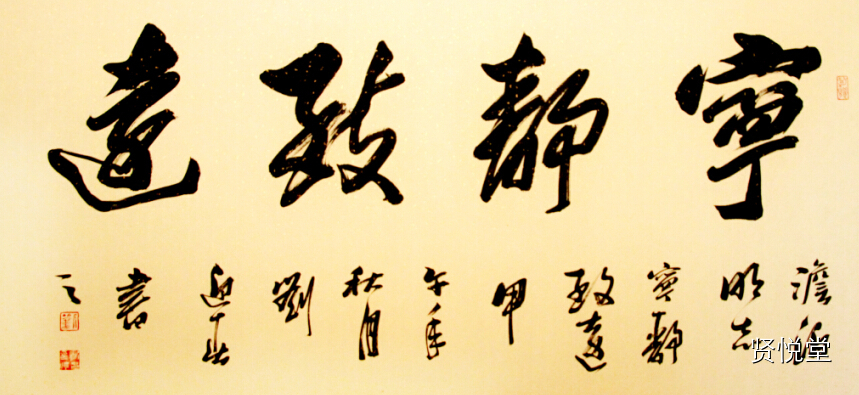 寧靜致遠
澹泊
明志
寧靜
致遠
甲
午年
秋月
劉
迎春
書
贤悦堂